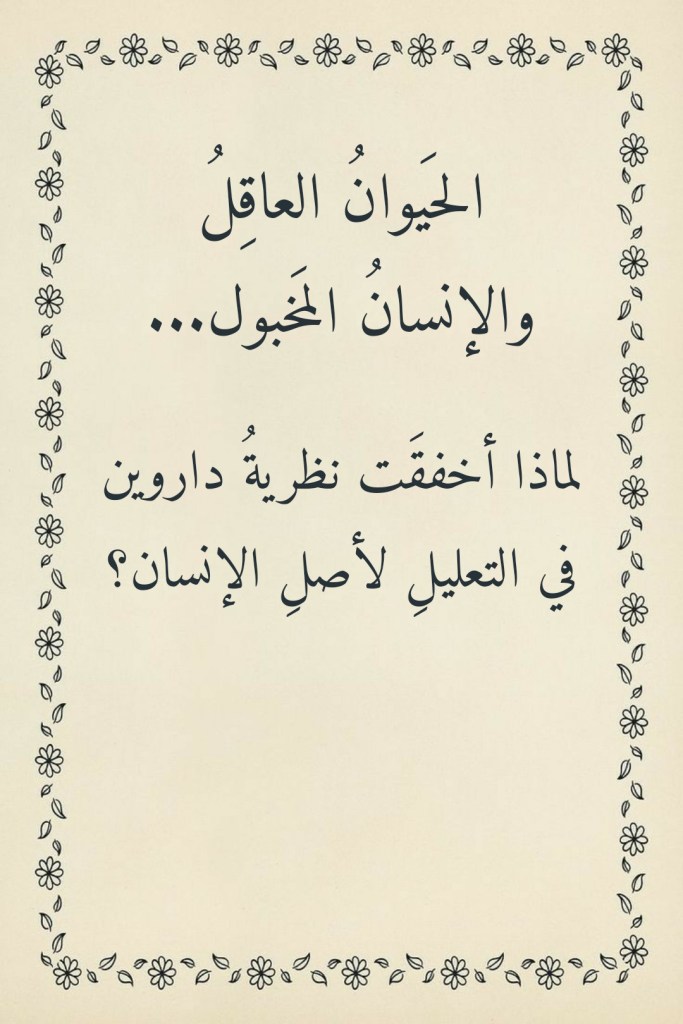 الحَيوانُ العاقِلُ
والإنسانُ المَخبول...
لماذا أخفقَت نظريةُ داروين
في التعليلِ لأصلِ الإنسان؟